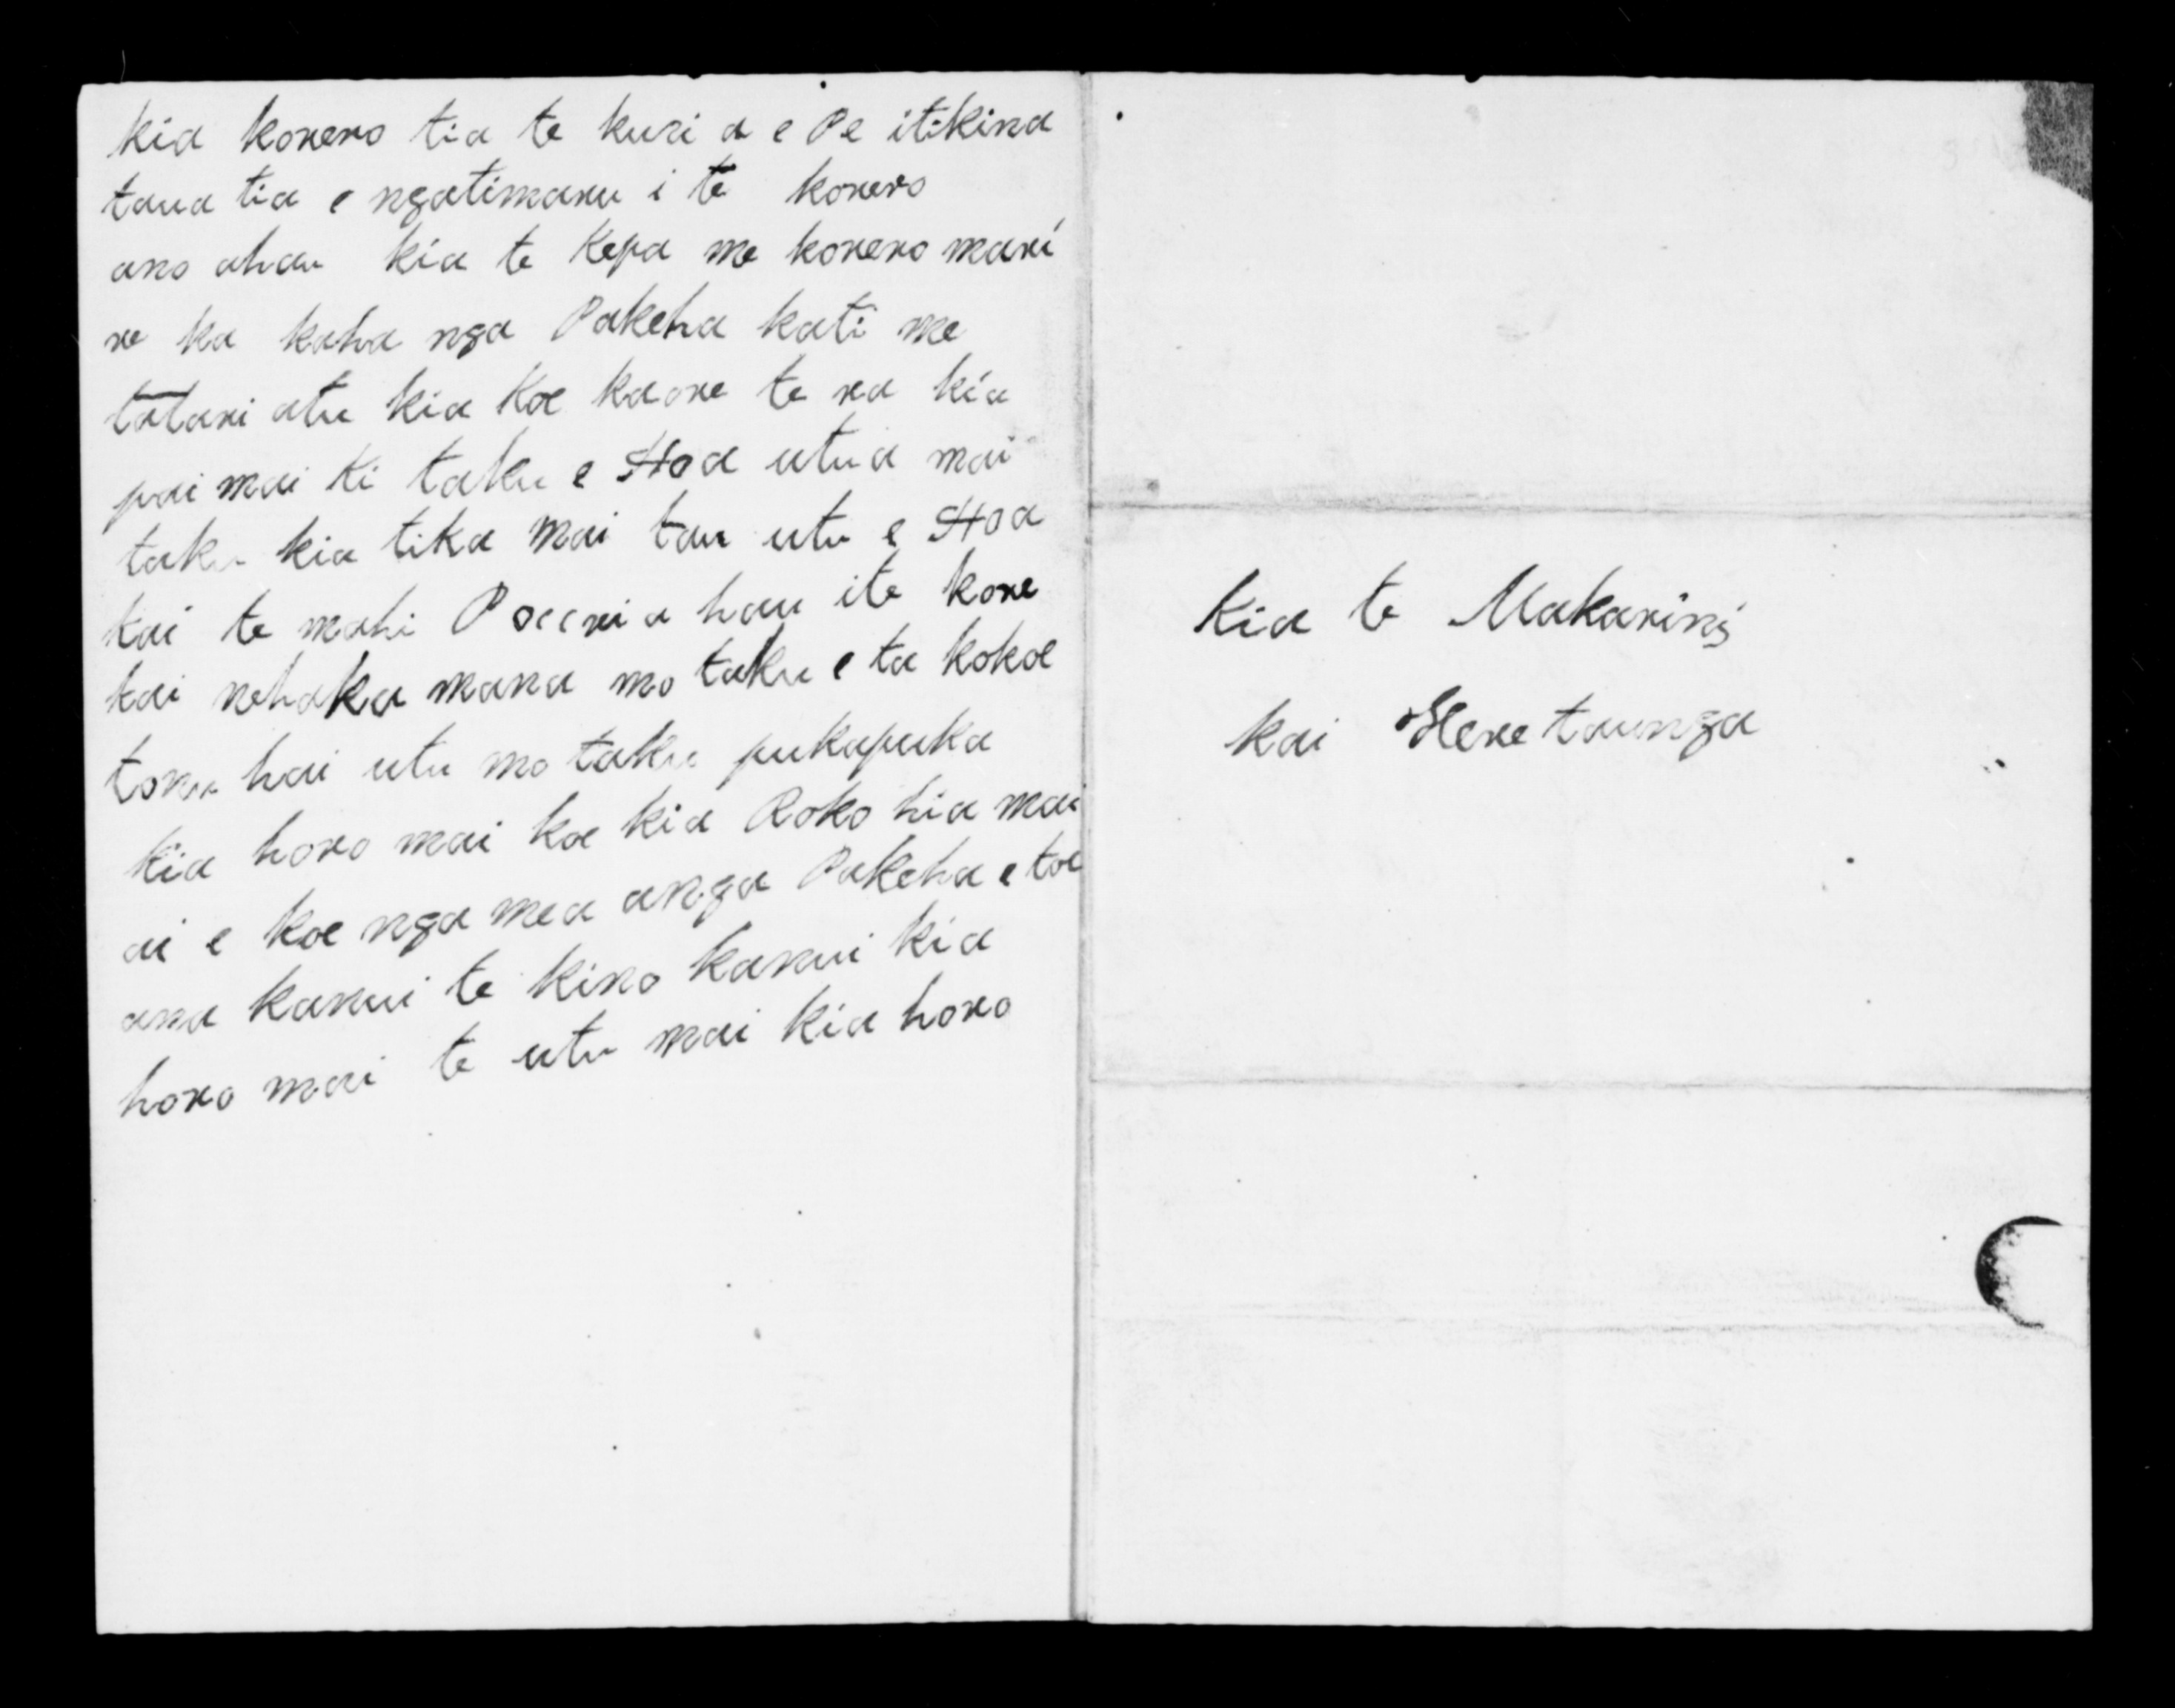 kia korero tia te kuri a e Pe itikina
taua tia e ngatimaru i te korero
ano ahau kia te Kepa me korero mari
re ka kaha nga Pakeha kati me
tatari atu kia Koe kaore te ra kia
pai mai Ki taku e Hoa utua mai
taku kia tika mai tau utu e Hoa
kai te mahi a hau ite kore
kai nehaka mana mo taku e ta kokoe
toku hai utu mo taku pukapuka
Kia horo mai koe kia Roko hia mai
ai e koe nga mea anga Pakeha e toe
ana kanui te kino kanui kia
horo mai te utu mai kia horo
Kia te Makarini
kai Heretaunga